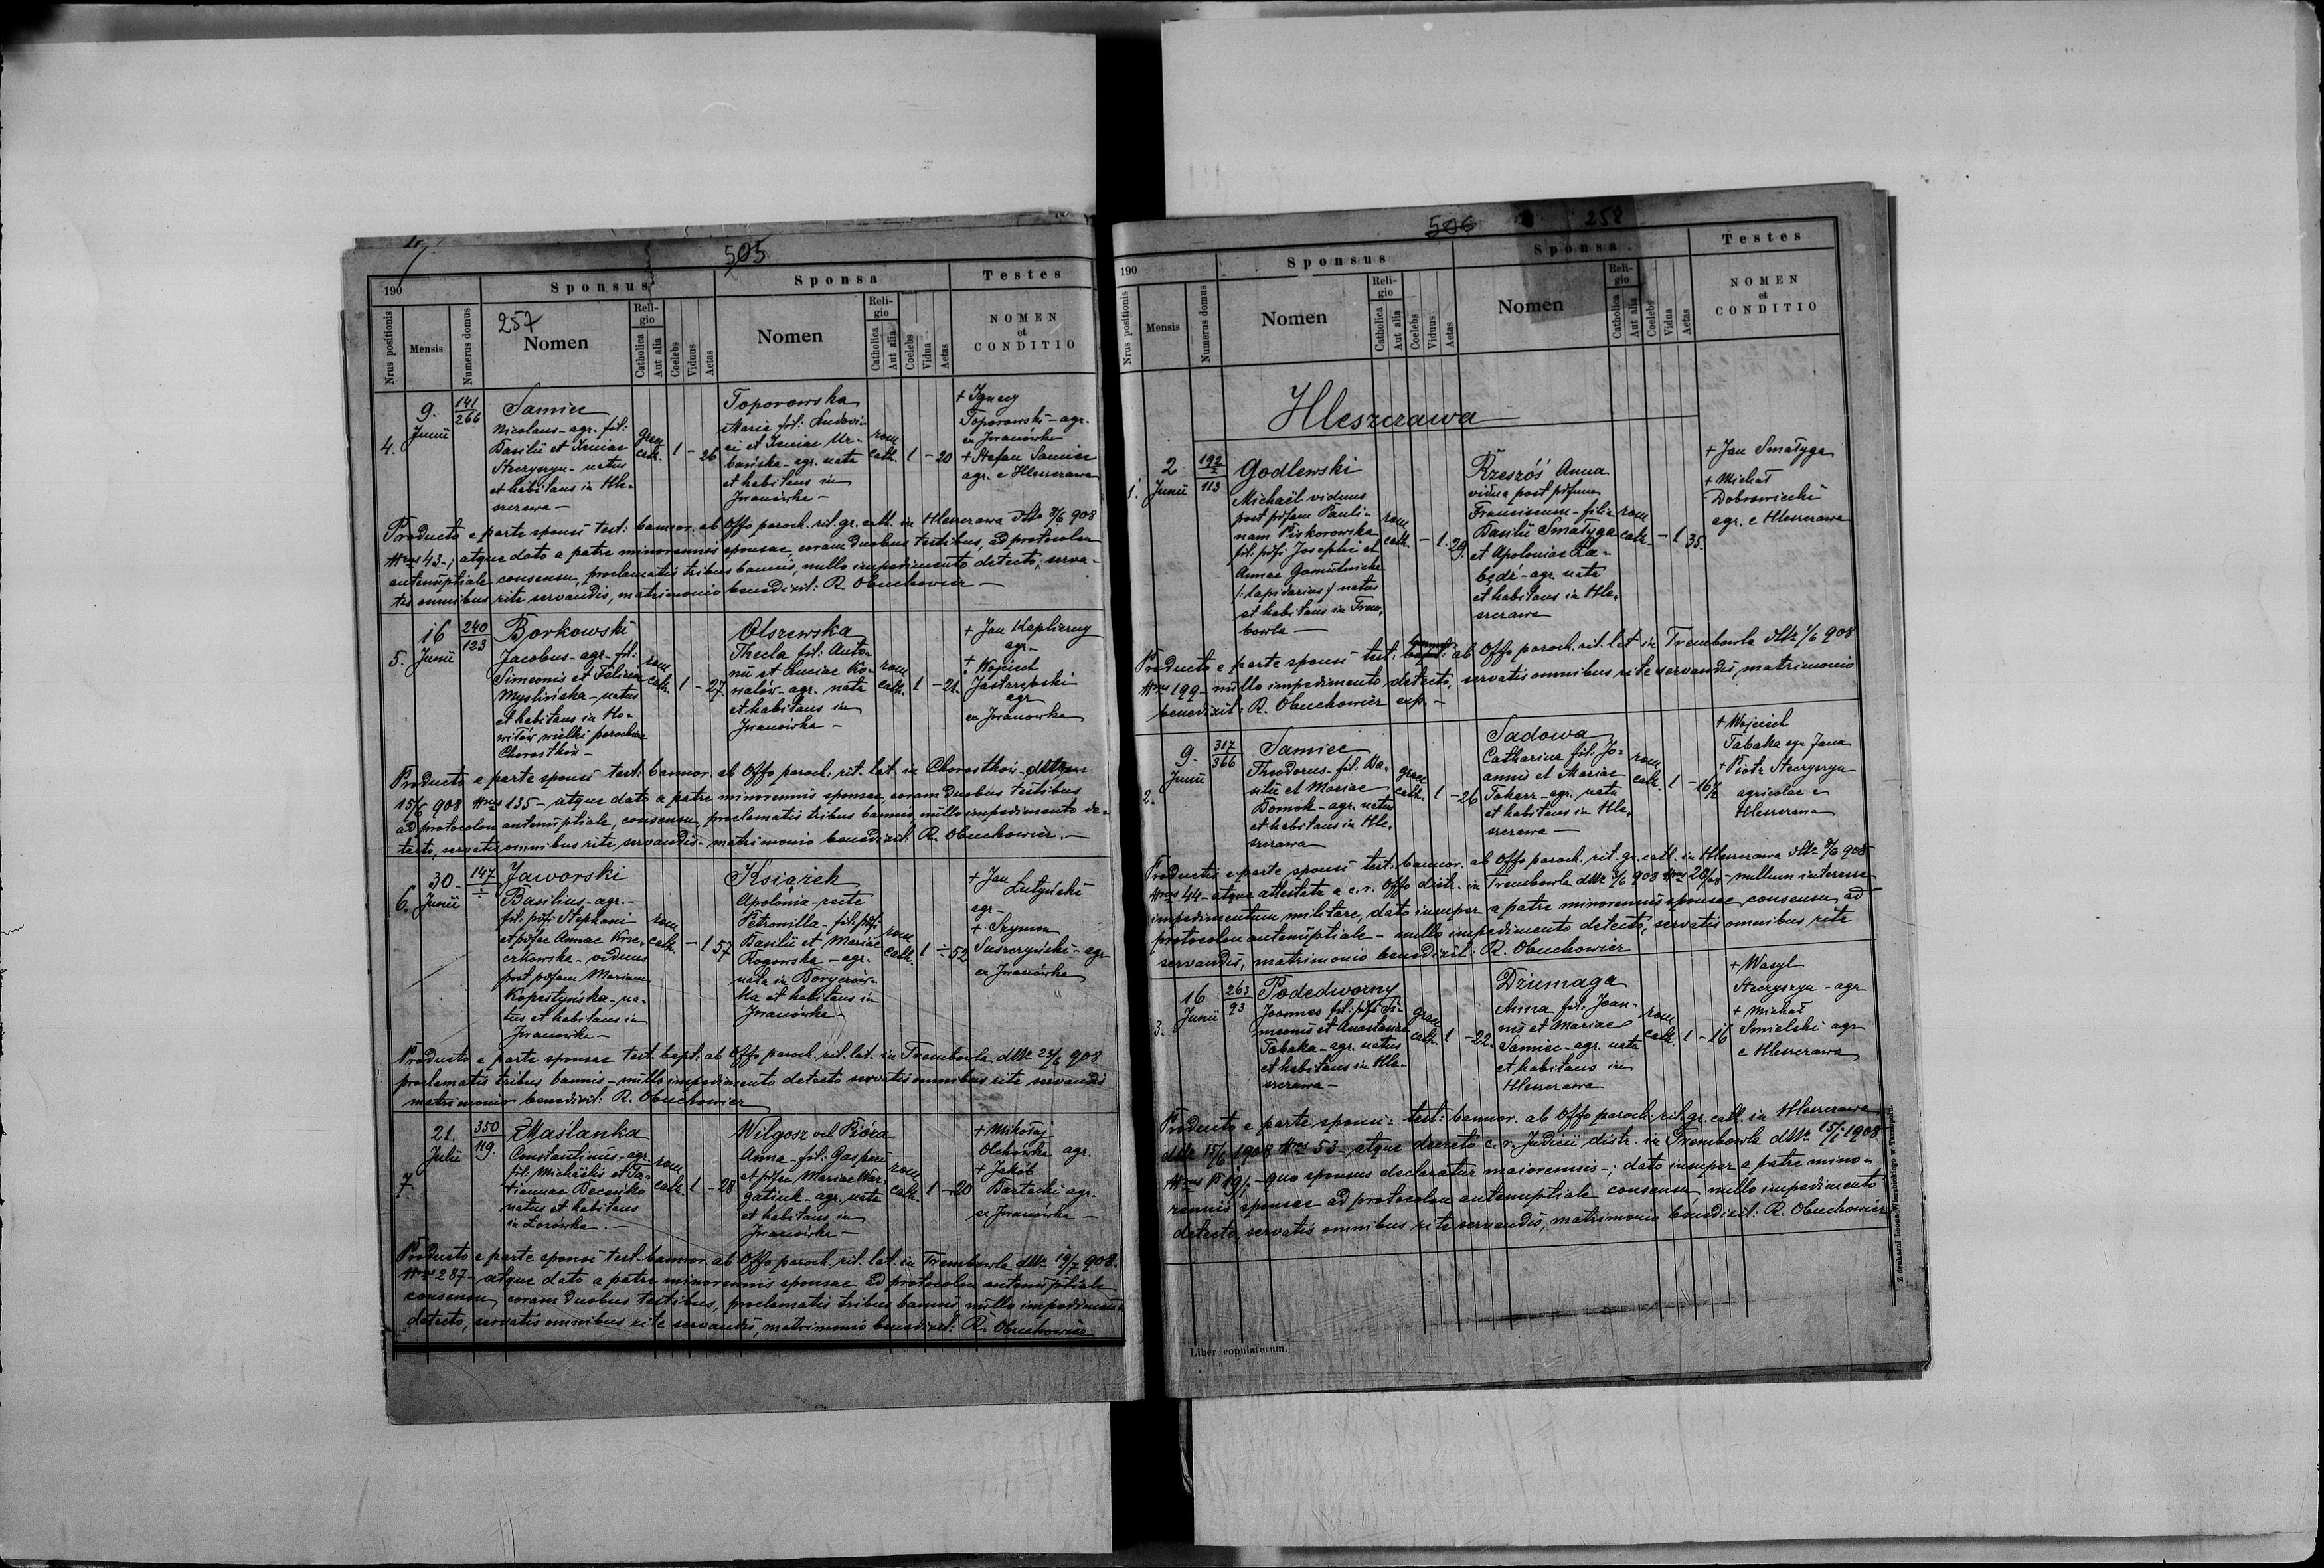 505
190
Sponsus
Sponsa
Testes
Nrus positionis
Mensis
Numerus domus
257
Nomen
Religio
Catholica
Aut alia
Coelebs
Viduus
Aetas
Nomen
Religio
Catholica
Aut alia
Coelebs
Vidua
Aetas
NOMEN
et
CONDITIO
4.
9.
Junii
141
266
Samiec
Nicolaus - agr. fil:
Basilii et Irenae
Steczyszyn - natus
et habitans in Hle-
szczawa -
graec
cath.
1 - 26
Toporowska
Maria fil: Ludovi-
ci et Xeniae Ur-
bańska - agr. nata
et habitans in
Iwanówka -
rom
cath.
1 - 20
+ Ignacy
Toporowski - agr.
ex Iwanówka
+ Stefan Samiec
agr. e Hleszczawa
Producto e parte sponsi test: bannor. ab Offo paroch. rit. gr. cath. in Hleszczawa dtto 8/6 908
Nrus 43 -; atque dato a patre minorennis sponsae, coram duobus testibus, ad protocolon
antenuptiale consensu, proclamatis tribus bannis, nullo impedimento detecto, serva-
tis omnibus rite servandis, matrimonio benedixit: R. Obuchowicz -
5.
16
Junii
240
123
Borkowski
Jacobus - agr - fil:
Simeonis et Feliciae
Myślińska - natus
et habitans in Ho-
witów wielki parochiae
Chorostków -
rom
cath.
1 - 27.
Olszewska
Thecla fil: Anto-
nii et Luciae Ko-
nalów - agr. nata
et habitans in
Iwanówka -
rom
cath.
1 - 21.
+ Jan Kapliczny
agr -
+ Wojciech
Jastrzębski
agr
ex Iwanówka
Producto e parte sponsi test: bannor. ab Offo paroch. rit. lat. in Chorostków -
15/6 908 Nrus 135 - atque dato a patre minorennis sponsae, coram duobus testibus
ad protocolon antenuptiale, consensu, proclamatis tribus bannis nullo impedimento de-
tecto, servatis omnibus rite servandis - matrimonio benedixit: R. Obuchowicz. -
6.
30.
Junii
147
Jaworski
Basilius - agr. -
fil: pdfi Stephani
et pdfae Annae Krze-
czkowska - viduus
post pdfam Mariam
Kopestyńska - na-
tus et habitans in
Iwanówka -
rom
cath.
- 1 57
Książek
Apolonia - recte
Petronilla - fil: pdfi
Basilii et Mariae
Rogowska - agr.
nata in Boryczów-
ka et habitans in
Iwanówka -
rom
cath.
1 ÷ 52
+ Jan
Lutyński
agr -
+ Szymon
Suszczyński - agr
ex Iwanówka
Producto e parte sponsae test. bapt. ab Offo paroch. rit. lat. in Trembowla dtto 23/6 908
proclamatis tribus bannis - nullo impedimento detecto servatis omnibus rite servandis
matrimonio benedixit: R. Obuchowicz
7.
21.
Julii
350
119.
Maślanka
Constantinus - agr.
fil: Michaëlis et Ta-
tiannae
natus et habitans
in Łozówka. -
rom
cath.
1 - 28
Wilgosz vel Pióra
Anna - fil: Gaspari
et pdfae Mariae War-
gatiuk - agr. nata
et habitans in
Iwanówka -
rom
cath.
1 - 20
+ Mikołaj
Olchówka agr.
+ Jakób
Bartecki agr.
ex Iwanówka -
Producto e parte sponsi test. bannor. ab Offo paroch. rit. lat. in Trembowla dtto 19/7 908.
Nrus 287 - atque dato a patre minorennis sponsae ad protocolon antenuptiale
consensu, coram duobus testibus, proclamatis tribus bannis, nullo impedimento
detecto, servatis omnibus rite servandis, matrimonio benedixit: R. Obuchowicz
506
258
190
Sponsus
Sponsa
Testes
Nrus positionis
Mensis
Numerus domus
Nomen
Religio
Catholica
Aut alia
Coelebs
Viduus
Aetas
Nomen
Religio
Catholica
Aut alia
Coelebs
Vidua
Aetas
NOMEN
et
CONDITIO
Hleszczawa
1.
2
Junii
192/2
113
Godlewski
Michaël viduus
post pdfam Pauli-
nam Piskorowska
fil: pdfi Josephi et
Annae Gomulnicka
/:lapidarius:/ natus
et habitans in Trem-
bowla -
rom
cath.
- 1. 29.
Rzeszóś Anna
vidua post pdfum
Franciscum - filia
Basilii Smałyga
et Apoloniae Ła-
będź - agr. nata
et habitans in Hle-
szczawa
rom
cath.
- 1 35.
+ Jan Smałyga
+ Michał
Dobrowiecki
agr. e Hleszczawa
Producto e parte sponsi test: bannor: ab Offo paroch. rit. lat in Trembowla dtto 1/6 908
Nrus 199 - nullo impedimento detecto, servatis omnibus rite servandis, matrimonio
benedixit: R. Obuchowicz exp. -
2.
9.
Junii
317
366
Samiec
Theodorus - fil: Ba-
silii et Mariae
Domok - agr. natus
et habitans in Hle-
szczawa
graec
cath.
1 - 26
Sadowa
Catharina fil: Jo-
annis et Mariae
Tokarz - agr. nata
et habitans in Hle-
szczawa -
rom
cath.
1 - 16 1/2
+ Wojciech
Tabaka syn Jana
+ Piotr Steczyszyn
agricolae e
Hleszczawa
Productis e parte sponsi test. bannor. ab Offo paroch. rit. gr. cath. in Hleszczawa dtto 8/6 908
Nrus 44 - atque attestato a c. r. Offo distr. in Trembowla dtto 3/6 908 Nrus 28/ - nullum interesse
impedimentum militare, dato insuper a patre minorennis sponsae consensu, ad
protocolon antenuptiale - nullo impedimento detecto, servatis omnibus rite
servandis, matrimonio benedixit: R. Obuchowicz
3.
16
Junii
263
93
Podedworny
Joannes fil: pdfi Si-
meonis et Anastasiae
Tabaka - agr. natus
et habitans in Hle-
szczawa -
graec
cath.
1 - 22.
Dziumaga
Anna fil: Joan-
nis et Mariae
Samiec - agr. nata
et habitans in
Hleszczawa
rom
cath.
1 - 16
+ Wasyl
Steczyszyn - agr
+ Michał
Smielski agr
e Hleszczawa
Producto e parte sponsi - test: bannor. ab Offo paroch. rit. gr. cath. in Hleszczawa
dtto 15/6 1908 Nrus 53 -, atque decreto c. r. Judicii distr. in Trembowla dtto 15/5 1908
Nrus P - quo sponsus declaratur maiorennis -; dato insuper a patre mino-
rennis sponsae ad protocolon antenuptiale consensu, nullo impedimento
detecto, servatis omnibus rite servandis, matrimonio benedixit: R. Obuchowicz
Liber copulatorum.
Z drukarni Leona Wierzbickiego w Tarnopolu.